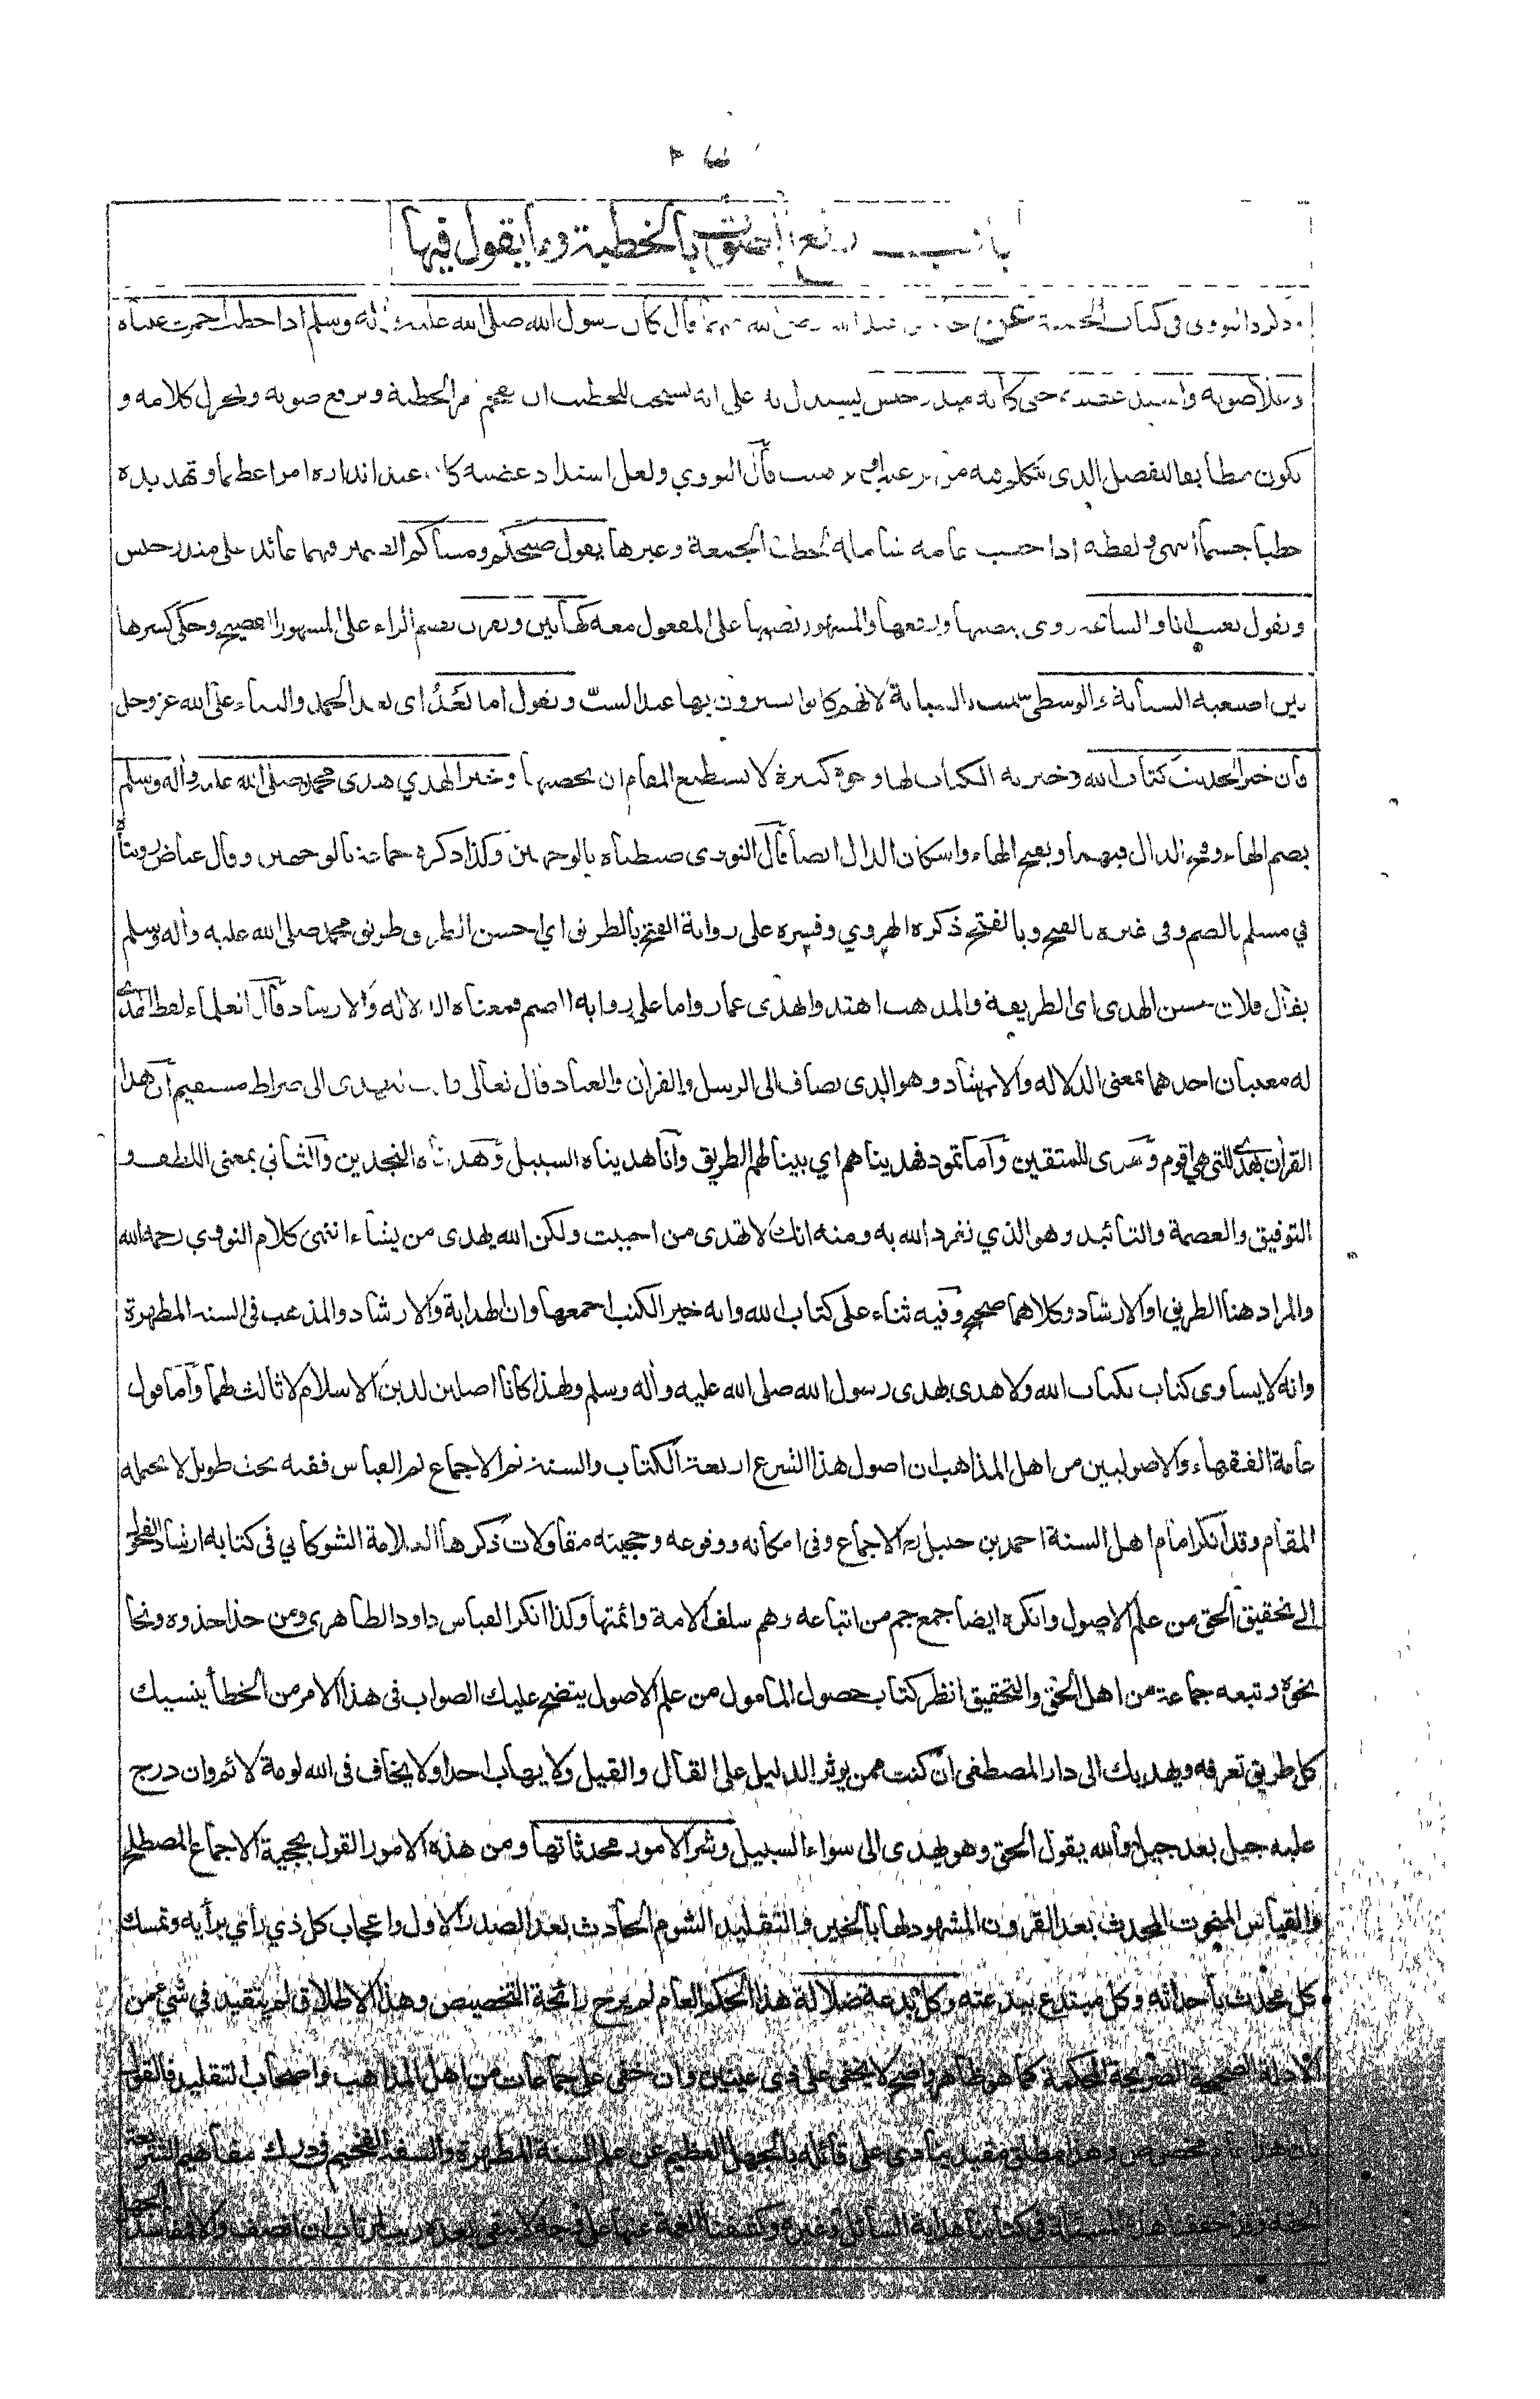 باب رفع الصوت بالخطبة وما يقول فيها
وذكره النووي في كتاب الجمعة عن جابر بن عبد الله رضي الله عنهما قال كان رسول الله صلى الله عليه وآله وسلم اذا خطب احمرت عيناه
وعلا صوته واشتد غضبه حتى كأنه منذر جيش يستدل به على انه يستحب للخطيب ان يفخم امر الخطبة ويرفع صوته ويجزل كلامه و
يكون مطابقا للفصل الذي يتكلم فيه من ترغيب او ترهيب قال النووي ولعل اشتداد غضبه كان عند انذاره امرا عظيما وتهديده
خطبا جسيما انتهى ولفظه اذا خطب عامة شاملة لخطبة الجمعة وغيرها يقول صبحكم ومساكم الضمير فيهما عائد على منذر جيش
ويقول بعثت انا والساعة روي بنصبها ورفعها والمشهور نصبها على المفعول معه كهاتين ويقرن بضم الراء على المشهور الفصيح وحكي كسرها
بين اصبعيه السبابة والوسطى سميت السبابة لانهم كانوا يشيرون بها عند السبّ ويقول اما بَعْدُ اي بعد الحمد والثناء على الله عز وجل
فان خير الحديث كتاب الله وخيرية الكتاب لها وجوه كثيرة لا يستطيع المقام ان يحصيها وخير الهدي هدى محمد صلى الله عليه وآله وسلم
بضم الهاء وفتح الدال فيهما وبفتح الهاء واسكان الدال ايضا قال النووى ضبطناه بالوجهين وكذا ذكره جماعة بالوجهين وقال عياض رويناه
في مسلم بالضم وفى غيره بالفتح وبالفتح ذكره الهروي وفسره على رواية الفتح بالطريق اي احسن الطرق طريق محمد صلى الله عليه وآله وسلم
يقال فلان حسن الهدى اى الطريقة والمذهب اهتدوا بهدى عمار واما على رواية الضم فمعناه الدلالة والارشاد قال العلماء لفظ الهدى
له معنيان احدهما بمعنى الدلالة والارشاد وهو الذى يضاف الى الرسل والقران والعباد قال تعالى وانك لتهدى الى صراط مستقيم ان هذا
القران يهدى للتى هي اقوم وهدى للمتقين وأما ثمود فهديناهم اي بينا لهم الطريق وانا هديناه السبيل وهديناه النجدين والثاني بمعنى اللطف و
التوفيق والعصمة والتائيد وهو الذي تفرد الله به ومنه انك لا تهدى من احببت ولكن الله يهدى من يشاء انتهى كلام النووي رحمه الله
والمراد هنا الطريق او الارشاد وكلاهما صحيح وفيه ثناء على كتاب الله وانه خير الكتب اجمعها وان الهداية والارشاد والمذهب فى السنة المطهرة
وانه لا يساوى كتاب بكتاب الله ولا هدى بهدى رسول الله صلى الله عليه وآله وسلم ولهذا كانا اصلين لدين الاسلام لا ثالث لهما وأما قول
عامة الفقهاء والاصوليين من اهل المذاهب ان اصول هذا الشرع اربعة الكتاب والسنة ثم الاجماع ثم القياس ففيه بحث طويل لا يحمله
المقام وقد انكر امام اهل السنة احمد بن حنبل رح الاجماع وفى امكانه ووقوعه وحجيته مقاولات ذكرها العلامة الشوكاني فى كتابه ارشاد الفحول
إلى تحقيق الحق من علم الاصول وانكره ايضا جمع جم من اتباعه وهم سلف الامة وائمتها وكذا انكر القياس داود الظاهري ومن حذا حذوه ونحا
نحوه وتبعه جماعة من اهل الحق والتحقيق انظر كتاب حصول المامول من علم الاصول يتضح عليك الصواب فى هذا الامر من الخطأ ينسيك
كل طريق تعرفه ويهديك الى دار المصطفى ان كنت ممن يوثر الدليل على القال والقيل ولا يهاب احدا ولا يخاف فى الله لومة لائم وان درج
عليه جيل بعد جيل والله يقول الحق وهو يهدى الى سواء السبيل وشر الامور محدثاتها ومن هذه الامور القول بحجية الاجماع المصطلح
والقياس المنحوت المحدث بعد القرون المشهود لها بالخير والتقليد الشوم الحادث بعد الصدر الاول واعجاب كل ذي رأي برأيه وتمسك
كل محدث باحداثه وكل مبتدع ببدعته وكل بدعة ضلالة هذا الحكم العام لم يرح رائحة التخصيص وهذا الاطلاق لم يتقيد في شيء من
الادلة الصحيحة الصريحة المحكمة كما هو ظاهر واضح لا يخفى على ذى عينين وان خفى على جماعات من اهل المذاهب واصحاب التقليد فالقول
بان هذا عام مخصوص وهذا مطلق مقيد ينادى على قائله بالجهل العظيم عن علم السنة المطهرة والسفه الفخيم فى درك مفاهيم الشريعة
الحقة وقد حققنا هذه المسئلة في كتابنا هداية السائل وغيره وكشفنا الغمة عنها على وجه لا يبقى بعده ريب لمرتاب ان انصف والا